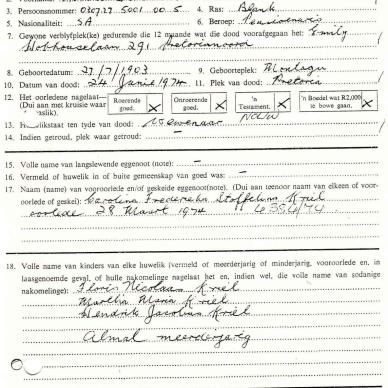 3. Persoonsnommer: 030727 5001 00 5 4. Ras: Blank
5. Nasionaliteit: SA 6. Beroep: Pensioenaris
7. Gewone verblyfplek(ke) gedurende die 12 maande wat die dood voorafgegaan het: Emily
Hobhouselaan 291 Pretorianoord
8. Geboortedatum: 27/7/1903 9. Geboorteplek: Montagu
10. Datum van dood: 24 Junie 1974 11. Plek van dood: Pretoria
12. Het oorledene nagelaat— (Dui aan met krusie waar Roerende goed. X Onroerende goed. X 'n Testament. X 'n Boedel wat R2,000 te bowe gaan. X
13. Huwelikstaat ten tyde van dood: Wewenaar
14. Indien getroud, plek waar getroud: –
15. Volle naam van langslewende eggenoot (note): –
16. Vermeld of huwelik in of buite gemeenskap van goed was: –
17. Naam (name) van vooroorlede en/of geskeide eggenoot(note). (Dui aan teenoor naam van elkeen of voor-
oorlede of geskei): Carolina Frederieka Stoffelina Kriel
oorlede 28 Maart 1974 4354/74
18. Volle name van kinders van elke huwelik (vermeld of meerderjarig of minderjarig, vooroorlede en, in
laasgenoemde geval, of hulle nakomelinge nagelaat het en, indien wel, die volle name van sodanige
nakomelinge): Floris Nicolaas Kriel
Martha Maria Kriel
Hendrik Jacobus Kriel
Almal meerderjarig